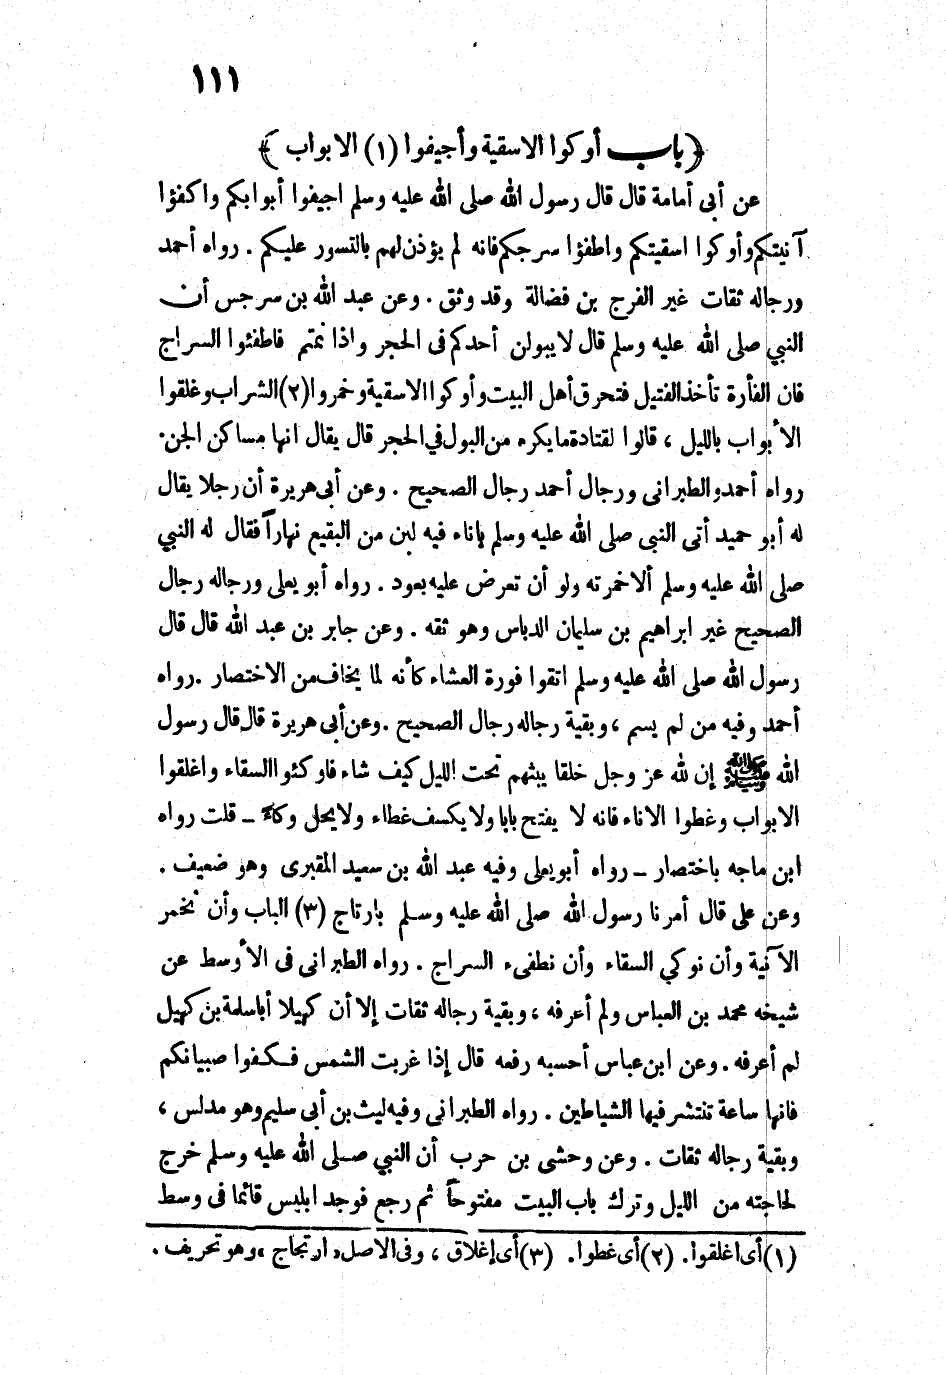 ١١١
﴿ باب أوكوا الاسقية وأجيفوا (١) الابواب ﴾
عن أبى أمامة قال قال رسول الله صلى الله عليه وسلم اجيفوا أبوابكم واكفؤا
آنيتكم وأوكوا اسقيتكم واطفؤا سرجكم فانه لم يؤذن لهم بالتسور عليكم . رواه أحمد
ورجاله ثقات غير الفرج بن فضالة وقد وثق . وعن عبد الله بن سرجس أن
النبي صلى الله عليه وسلم قال لا يبولن أحدكم فى الحجر واذا نمتم فاطفئوا السراج
فان الفأرة تأخذ الفتيل فتحرق أهل البيت وأوكوا الاسقية وخمروا (٢) الشراب وغلقوا
الأبواب بالليل ، قالوا لقتادة ما يكره من البول في الحجر قال يقال انها مساكن الجن .
رواه أحمد والطبرانى ورجال أحمد رجال الصحيح . وعن أبى هريرة أن رجلا يقال
له أبو حميد أتى النبى صلى الله عليه وسلم بإناء فيه لبن من البقيع نهاراً فقال له النبي
صلى الله عليه وسلم ألا خمرته ولو أن تعرض عليه بعود . رواه أبو يعلى ورجاله رجال
الصحيح غير ابراهيم بن سليمان الدباس وهو ثقه . وعن جابر بن عبد الله قال قال
رسول الله صلى الله عليه وسلم اتقوا فورة العشاء كأنه لما يخاف من الاختصار . رواه
أحمد وفيه من لم يسم ، وبقية رجاله رجال الصحيح . وعن أبى هريرة قال قال رسول
الله ﷺ إن لله عز وجل خلقا يبثهم تحت الليل كيف شاء فاوكئوا السقاء واغلقوا
الابواب وغطوا الاناء فانه لا يفتح بابا ولا يكسف غطاء ولا يحل وكاء ـ قلت رواه
ابن ماجه باختصار ـ رواه أبو يعلى وفيه عبد الله بن سعيد المقبرى وهو ضعيف .
وعن على قال أمرنا رسول الله صلى الله عليه وسلم بارتاج (٣) الباب وأن نخمر
الآنية وأن نوكي السقاء وأن نطفىء السراج . رواه الطبرانى فى الأوسط عن
شيخه محمد بن العباس ولم أعرفه ، وبقية رجاله ثقات إلا أن كهيلا أبا سلمة بن كهيل
لم أعرفه . وعن ابن عباس أحسبه رفعه قال إذا غربت الشمس فكفوا صبيانكم
فانها ساعة تنتشر فيها الشياطين . رواه الطبرانى وفيه ليث بن أبى سليم وهو مدلس ،
وبقية رجاله ثقات . وعن وحشى بن حرب أن النبي صلى الله عليه وسلم خرج
لحاجته من الليل وترك باب البيت مفتوحاً ثم رجع فوجد ابليس قائما فى وسط
(١) أى اغلقوا. (٢) أى غطوا. (٣) أى إغلاق ، وفى الاصل « ارتجاج » وهو تحريف .